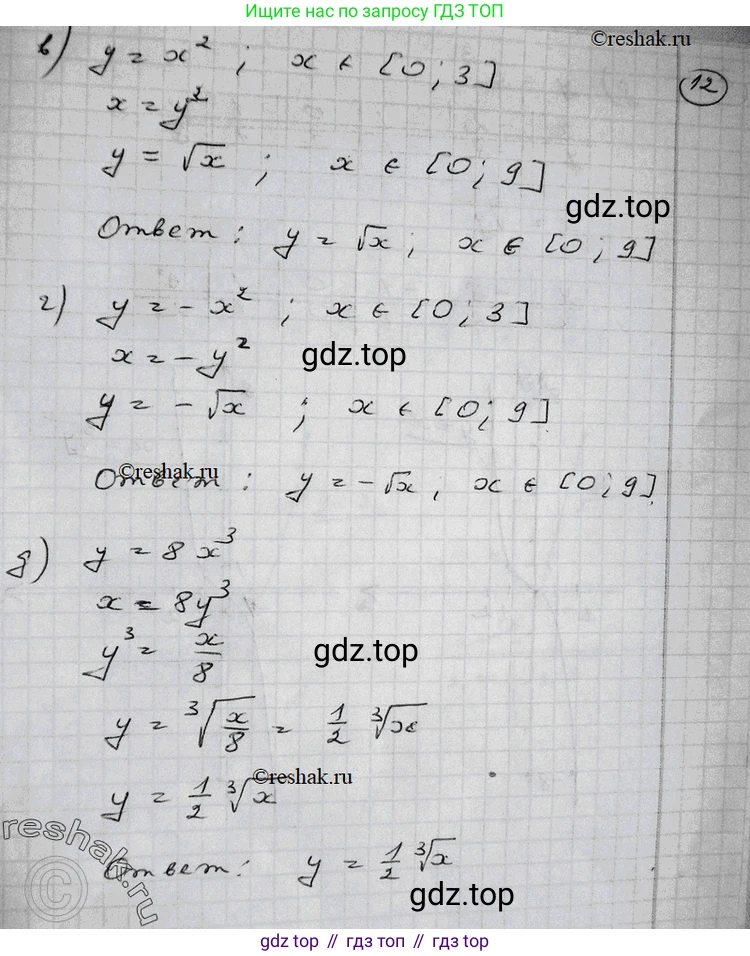 Ищите нас по запросу ГДЗ ТОП
©reshak.ru
12
в) y = x² ; x ∈ [0; 3]
x = y²
y = √x ; x ∈ [0; 9]
gdz.top
Ответ: y = √x; x ∈ [0; 9]
г) y = - x² ; x ∈ [0; 3]
x = - y²
gdz.top
y = - √x ; x ∈ [0; 9]
©reshak.ru
Ответ: y = - √x, x ∈ [0; 9]
д) y = 8x³
x = 8y³
y³ = x/8
gdz.top
y = ∛(x/8) = 1/2 ∛x
©reshak.ru
y = 1/2 ∛x
reshak.ru
Ответ: y = 1/2 ∛x
gdz.top
gdz top // гдз топ // gdz top